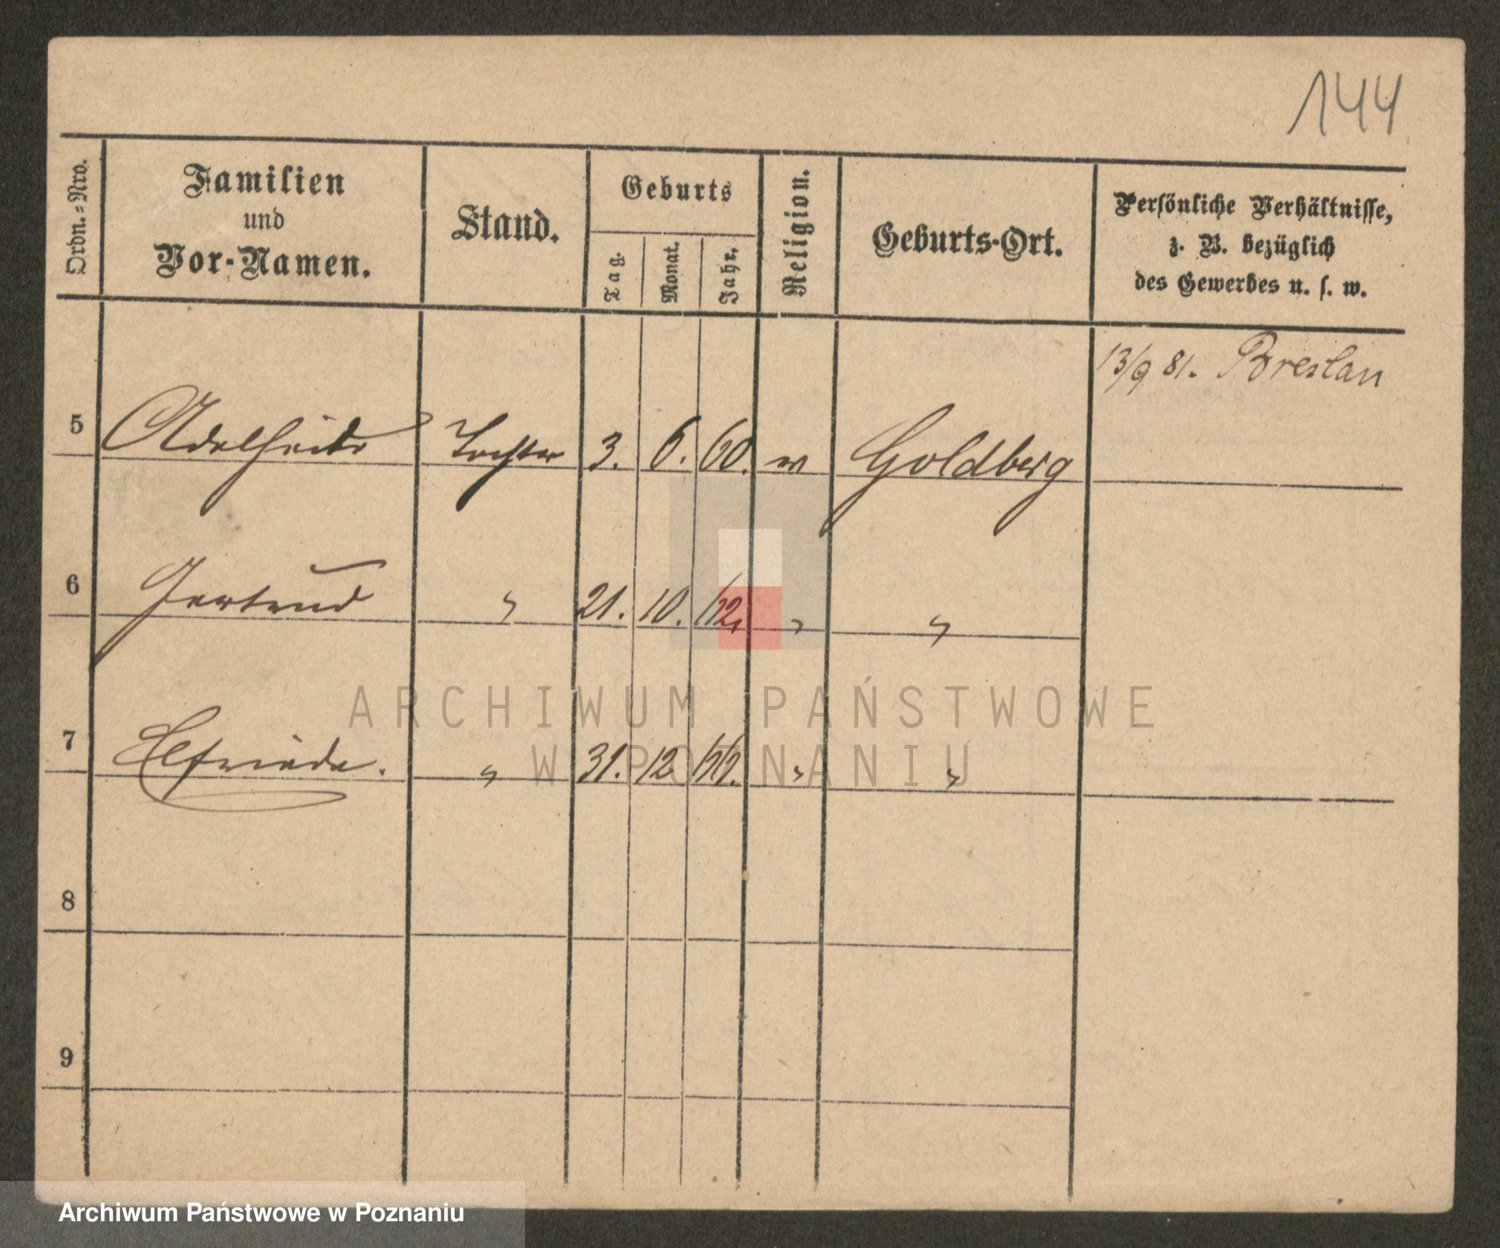 144
Ordn.-Nro.
Familien
und
Vor-Namen.
Stand.
Geburts
Tag.
Monat.
Jahr.
Religion.
Geburts-Ort.
Persönliche Verhältnisse,
z. B. bezüglich
des Gewerbes u. s. w.
13/9 81. Breslau
5 Adelheid Tochter 3. 6. 60. Goldberg
6 Gertrud " 21. 10. " "
7 Elfriede. " 31. 12 " "
8
9
ARCHIWUM PAŃSTWOWE
W POZNANIU
Archiwum Państwowe w Poznaniu